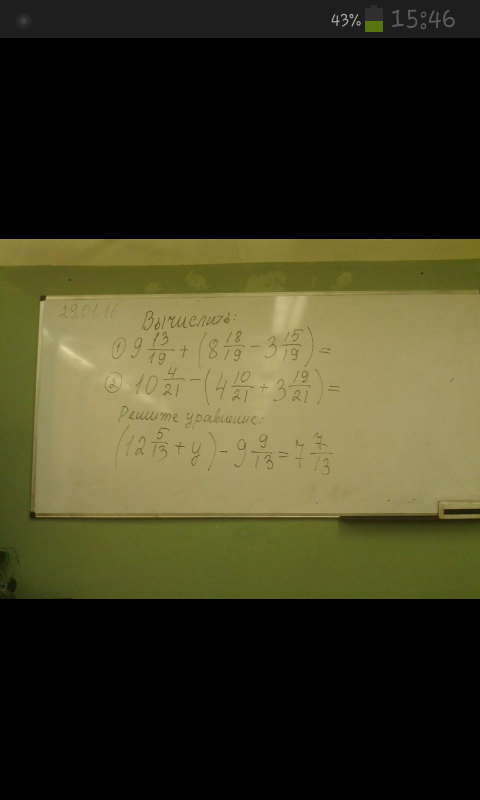 43% 15:46
29.01.16
Вычислить:
① 9 13/19 + (8 18/19 - 3 15/19) =
② 10 4/21 - (4 10/21 + 3 19/21) =
Решите уравнение:
(12 5/13 + y) - 9 9/13 = 7 7/13